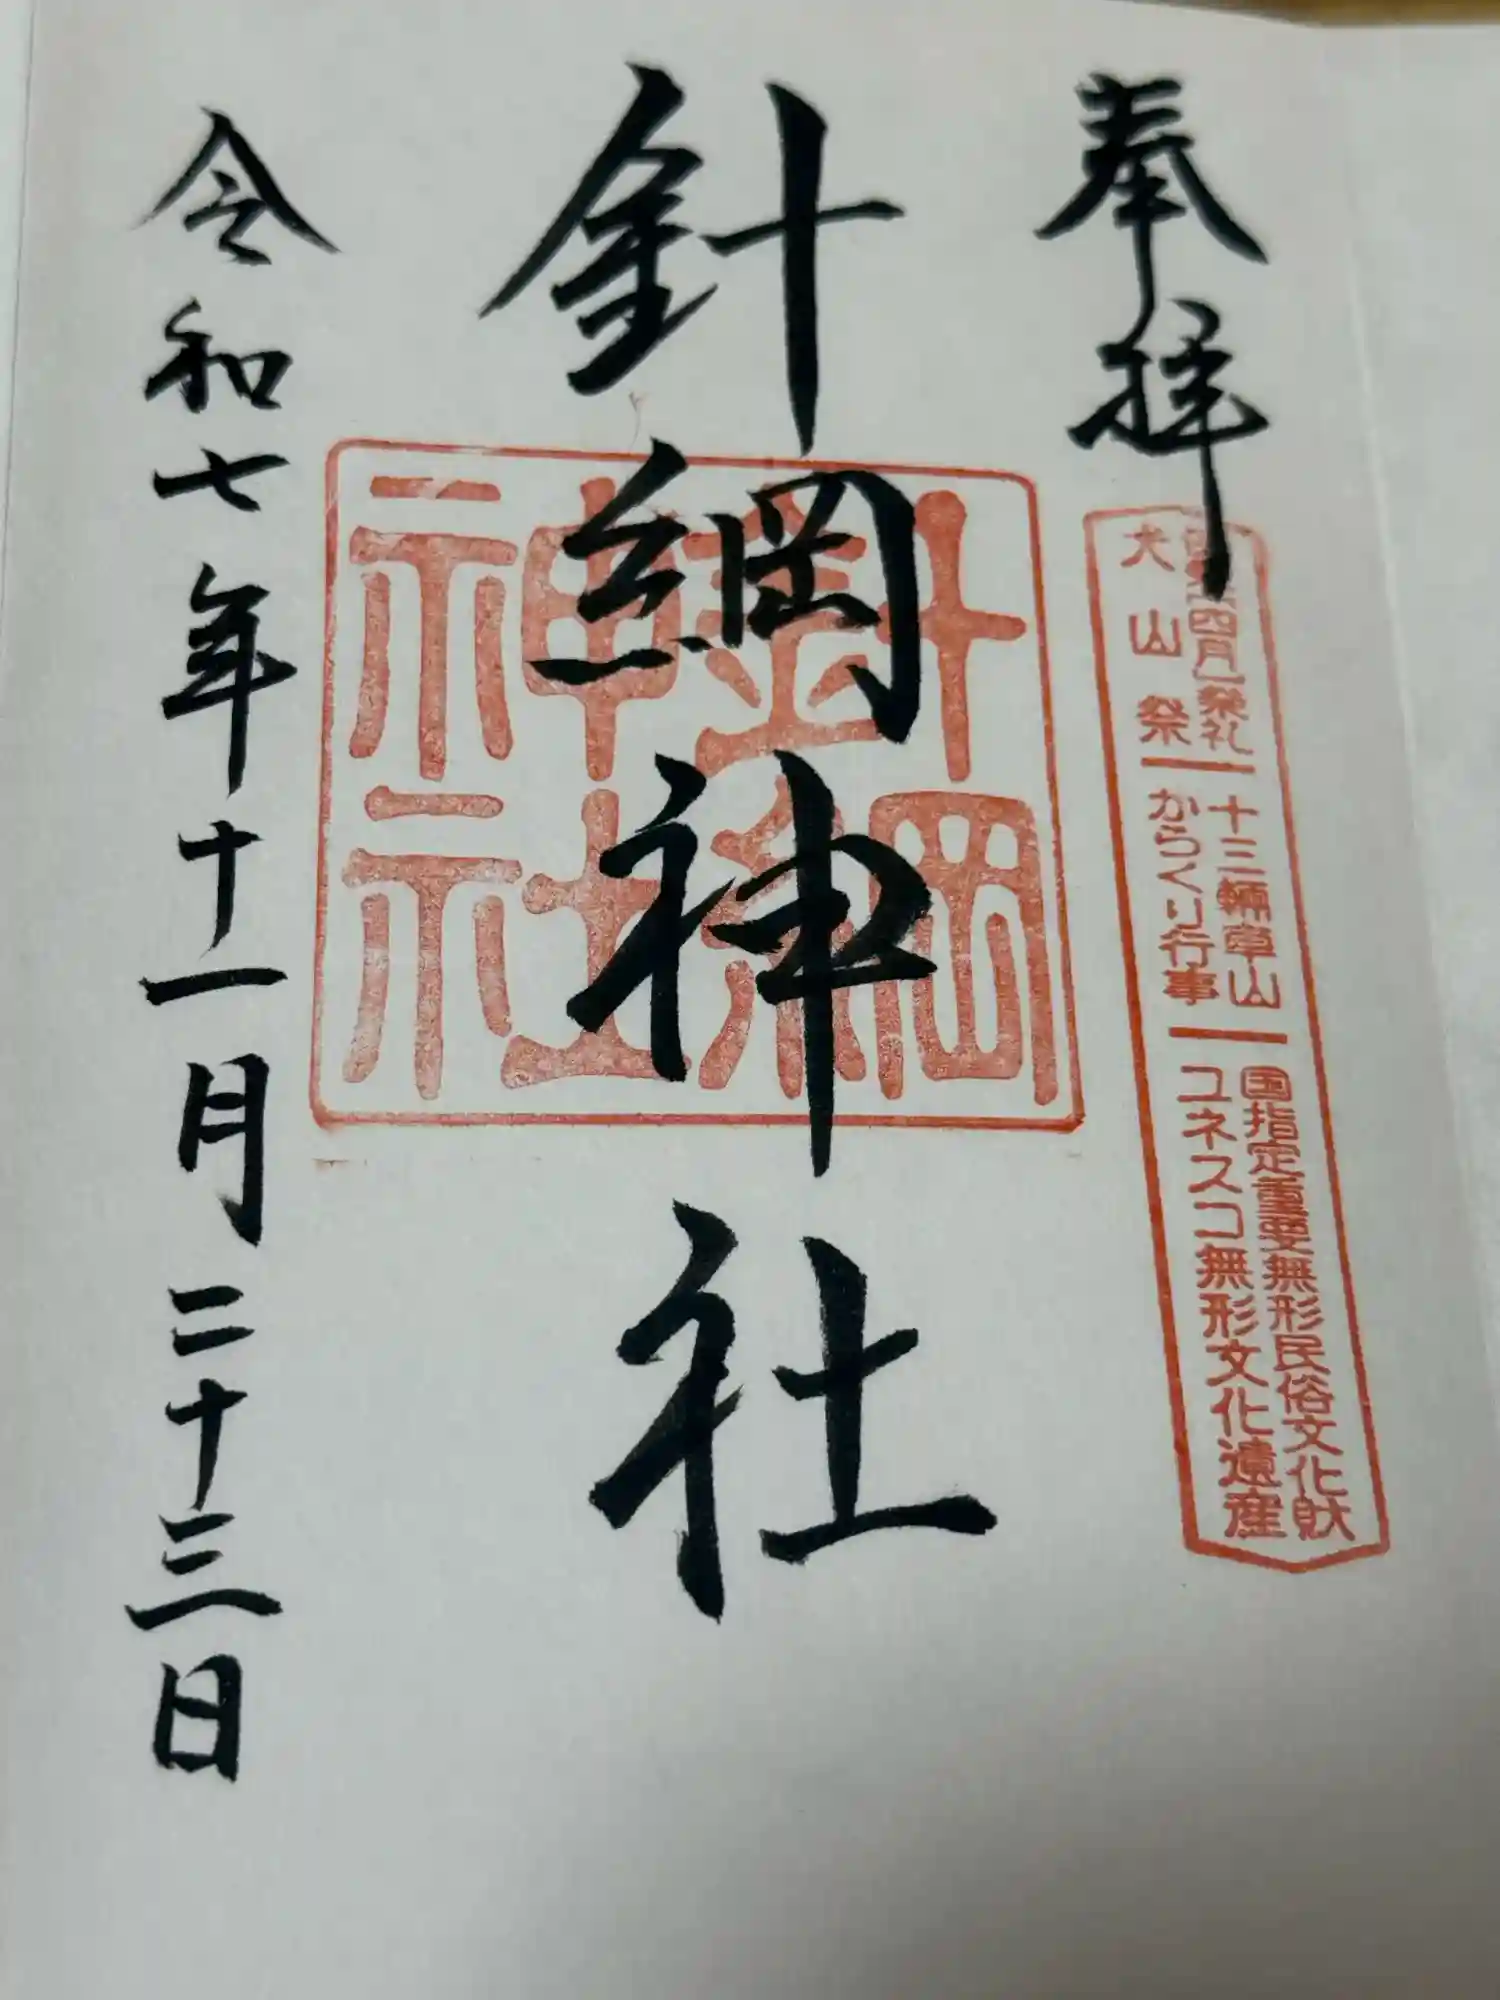 奉拝
四月祭礼 十三輛車山 国指定重要無形民俗文化財
犬山祭 からくり行事 ユネスコ無形文化遺産
針綱神社
針綱
神社
令和七年十一月二十三日